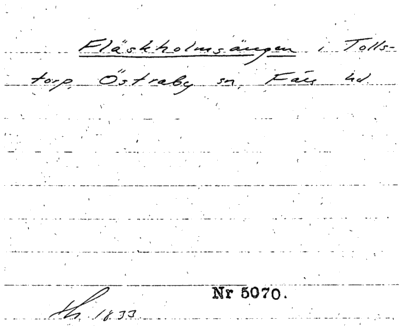 Fläskholmsängen i Tolls-
torp, Östraby sn, Färs hd.
Nr 5070.
1833